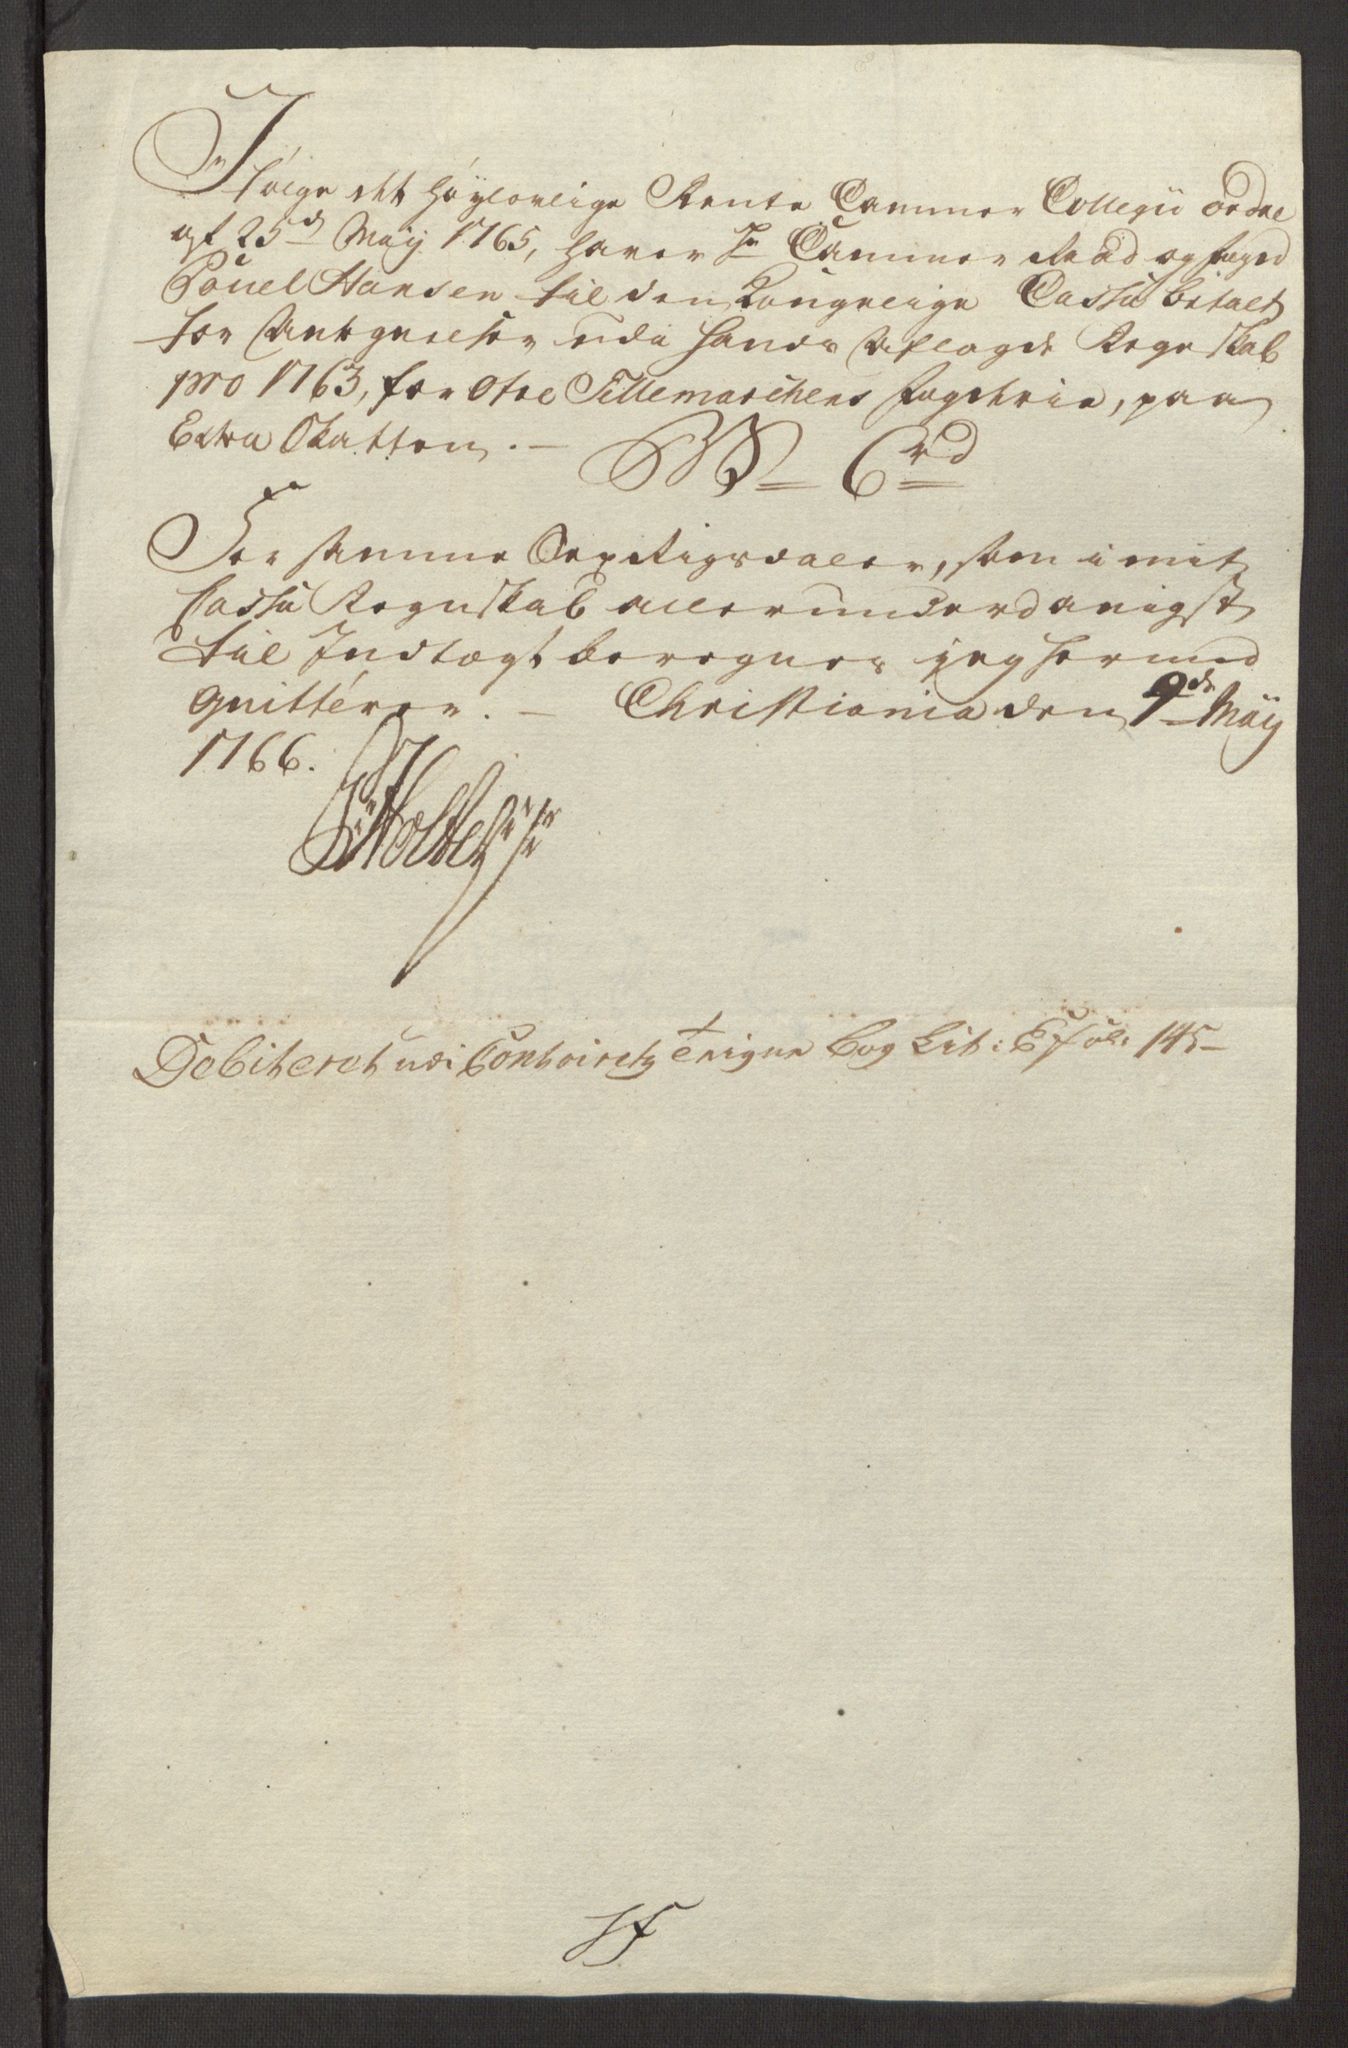 I følge det høylovlige Rente Cammer Collegii ordre
af 25de Maÿ 1765, haver Hr Cammer Raad og foged
Pouel Hansen til den Kongelige Cassa betalt
for Antegnelser udi hands Aflagde Regnskab
pro 1763, for Øvre Tillemarchens fogderie, paa
Extra Skatten. — 6 rd
For samme Sex Rigsdaler, som i mit
Cassa Regnskab allerunderdanigst
til Indtægt beregnes jeg hermed
qvitterer. — Christiania den 9de Maÿ
1766.
Debiteret udi Contoiretz Bog Lit: E fol: 145 —